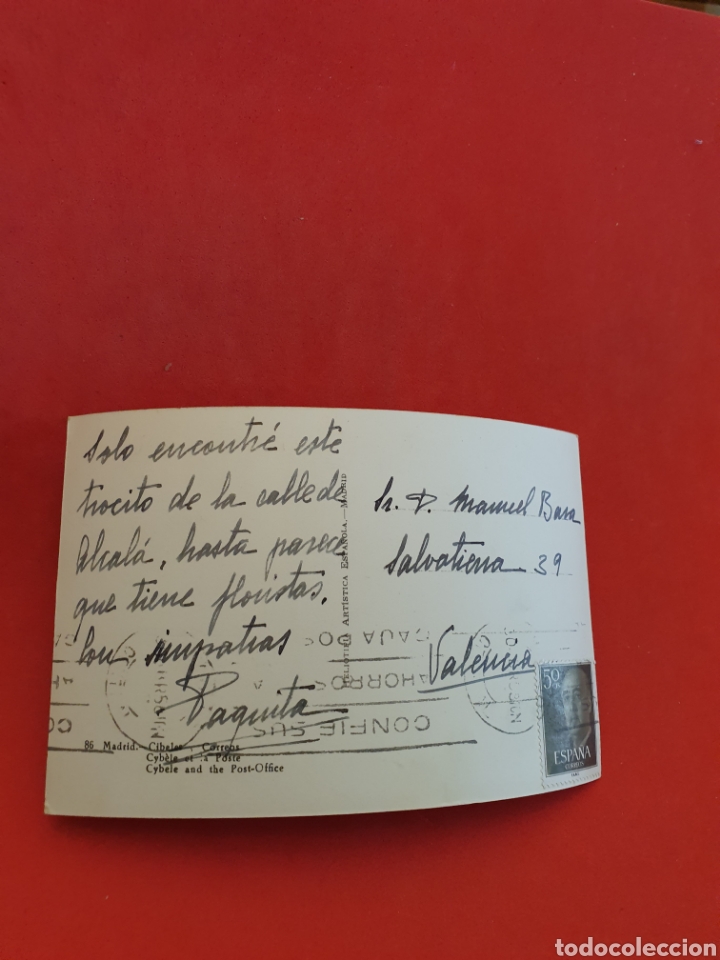 Solo encontré este
trocito de la calle de
Alcalá, hasta parece
que tiene floristas.
Con simpatias
Paquita
86 Madrid. Cibeles y Correos
Cybèle et la Poste
Cybele and the Post-Office
HELIOTIPIA ARTÍSTICA ESPAÑOLA.—MADRID
Sr. D. Manuel Basa
Salvatierra 39
Valencia
50
ESPAÑA
CORREOS
CONFIE SUS
AHORROS
CAJA
todocoleccion